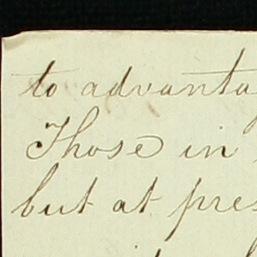 to advanta
Those in
but at pres